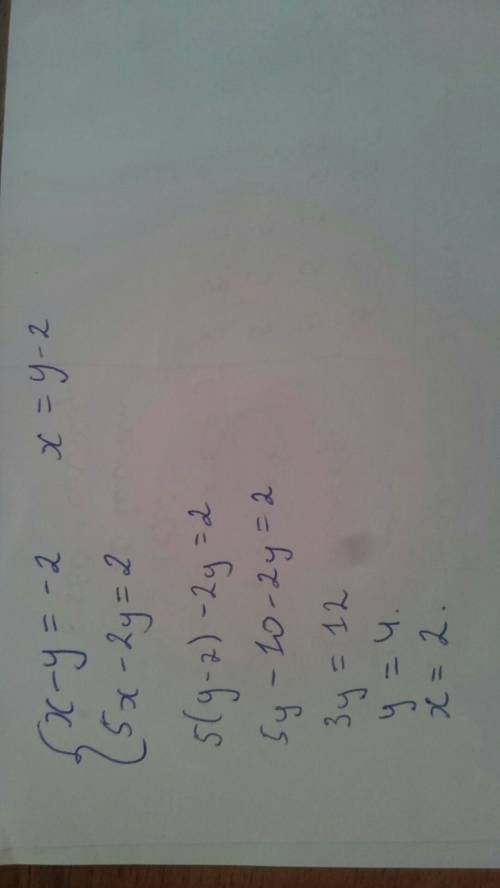 { x - y = -2    x = y - 2
5x - 2y = 2
5(y-2) - 2y = 2
5y - 10 - 2y = 2
3y = 12
y = 4.
x = 2.